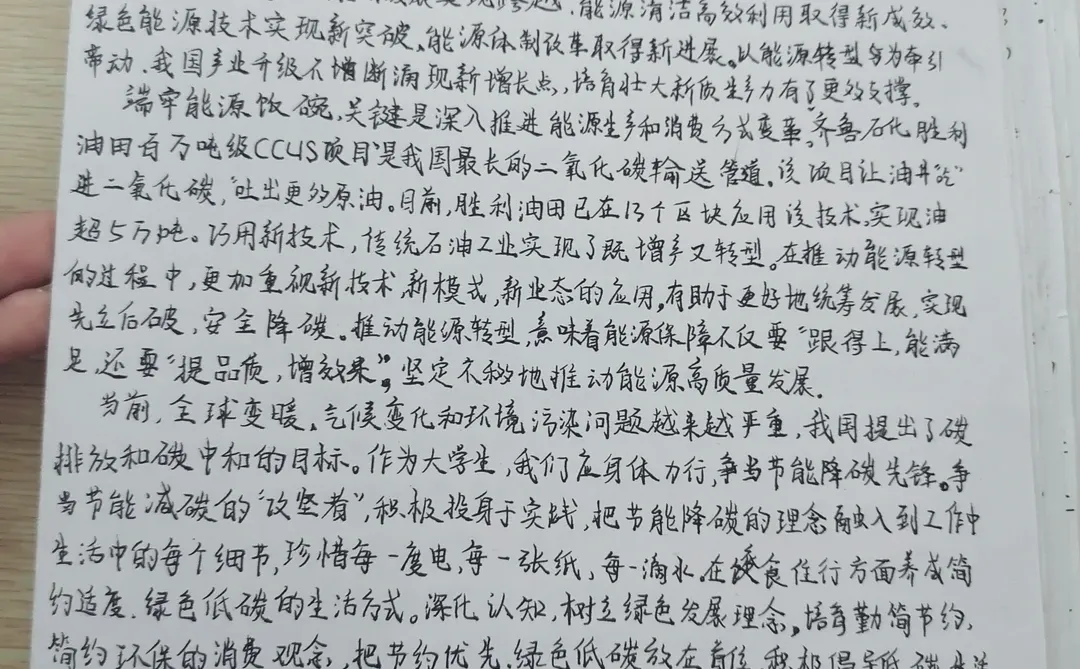 能源清洁高效利用取得新成效、
绿色能源技术实现新突破、能源体制改革取得新进展。以能源转型为牵引
带动、我国产业升级不增断涌现新增长点，培育壮大新质生产力有了更多支撑。
端牢能源饭碗，关键是深入推进能源生产和消费方式变革。齐鲁石化胜利
油田百万吨级CCUS项目是我国最长的二氧化碳输送管道。该项目让油井“吃”
进二氧化碳，“吐出更多原油。目前，胜利油田已在13个区块应用该技术，实现油
超5万吨。巧用新技术，传统石油工业实现了既增产又转型。在推动能源转型
的过程中，更加重视新技术，新模式，新业态的应用。有助于更好地统筹发展，实现
先立后破，安全降碳。推动能源转型，意味着能源保障不仅要“跟得上，能满
足，还要“提品质，增效果”，坚定不移地推动能源高质量发展。
当前，全球变暖、气候变化和环境污染问题越来越严重，我国提出了碳
排放和碳中和的目标。作为大学生，我们应身体力行，争当节能降碳先锋。争
当节能减碳的“攻坚者”，积极投身于实践，把节能降碳的理念融入到工作中
生活中的每个细节，珍惜每一度电，每一张纸，每一滴水，在衣食住行方面养成简
约适度、绿色低碳的生活方式。深化认知，树立绿色发展理念。培育勤简节约，
简约环保的消费观念，把节约优先，绿色低碳放在首位，积极倡导低碳生活